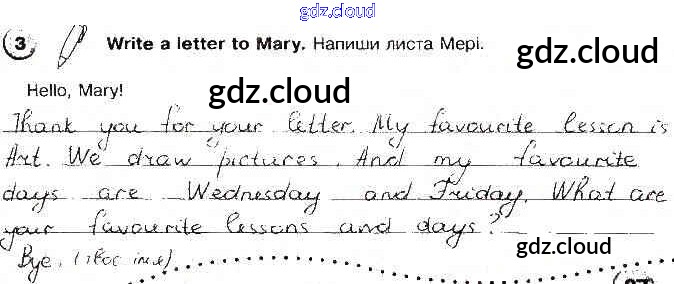 gdz.cloud
3 Write a letter to Mary. Напиши листа Мері.
gdz.cloud
Hello, Mary!
gdz.cloud
Thank you for your letter. My favourite lesson is
Art. We draw pictures. And my favourite
days are Wednesday and Friday. What are
your favourite lessons and days?
gdz.cloud
Bye. (твоє ім'я)
gdz.cloud